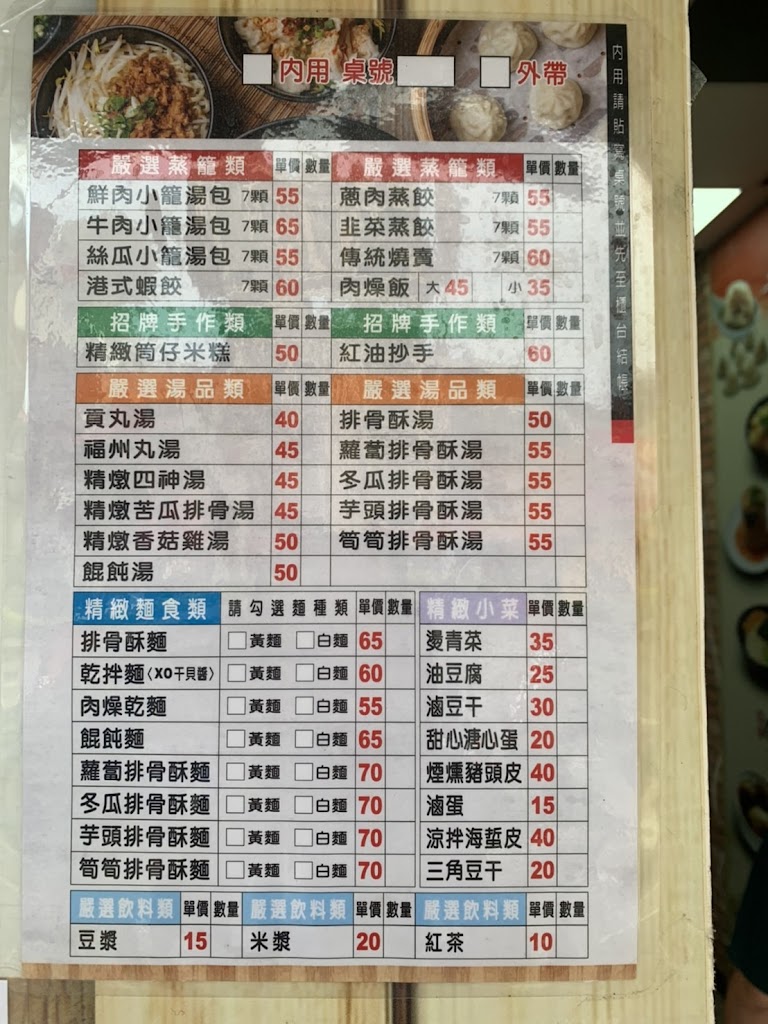 內用 桌號 外帶
內用請貼寫桌號並先至櫃台結帳
嚴選蒸籠類 單價 數量 嚴選蒸籠類 單價 數量
鮮肉小籠湯包 7顆 55 蔥肉蒸餃 7顆 55
牛肉小籠湯包 7顆 65 韭菜蒸餃 7顆 55
絲瓜小籠湯包 7顆 55 傳統燒賣 7顆 60
港式蝦餃 7顆 60 肉燥飯 大 45 小 35
招牌手作類 單價 數量 招牌手作類 單價 數量
精緻筒仔米糕 50 紅油抄手 60
嚴選湯品類 單價 數量 嚴選湯品類 單價 數量
貢丸湯 40 排骨酥湯 50
福州丸湯 45 蘿蔔排骨酥湯 55
精燉四神湯 45 冬瓜排骨酥湯 55
精燉苦瓜排骨湯 45 芋頭排骨酥湯 55
精燉香菇雞湯 50 筍筍排骨酥湯 55
餛飩湯 50
精緻麵食類 請勾選麵種類 單價 數量 精緻小菜 單價 數量
排骨酥麵 黃麵 白麵 65 燙青菜 35
乾拌麵〈XO干貝醬〉 黃麵 白麵 60 油豆腐 25
肉燥乾麵 黃麵 白麵 55 滷豆干 30
餛飩麵 黃麵 白麵 65 甜心溏心蛋 20
蘿蔔排骨酥麵 黃麵 白麵 70 煙燻豬頭皮 40
冬瓜排骨酥麵 黃麵 白麵 70 滷蛋 15
芋頭排骨酥麵 黃麵 白麵 70 涼拌海蜇皮 40
筍筍排骨酥麵 黃麵 白麵 70 三角豆干 20
嚴選飲料類 單價 數量 嚴選飲料類 單價 數量 嚴選飲料類 單價 數量
豆漿 15 米漿 20 紅茶 10